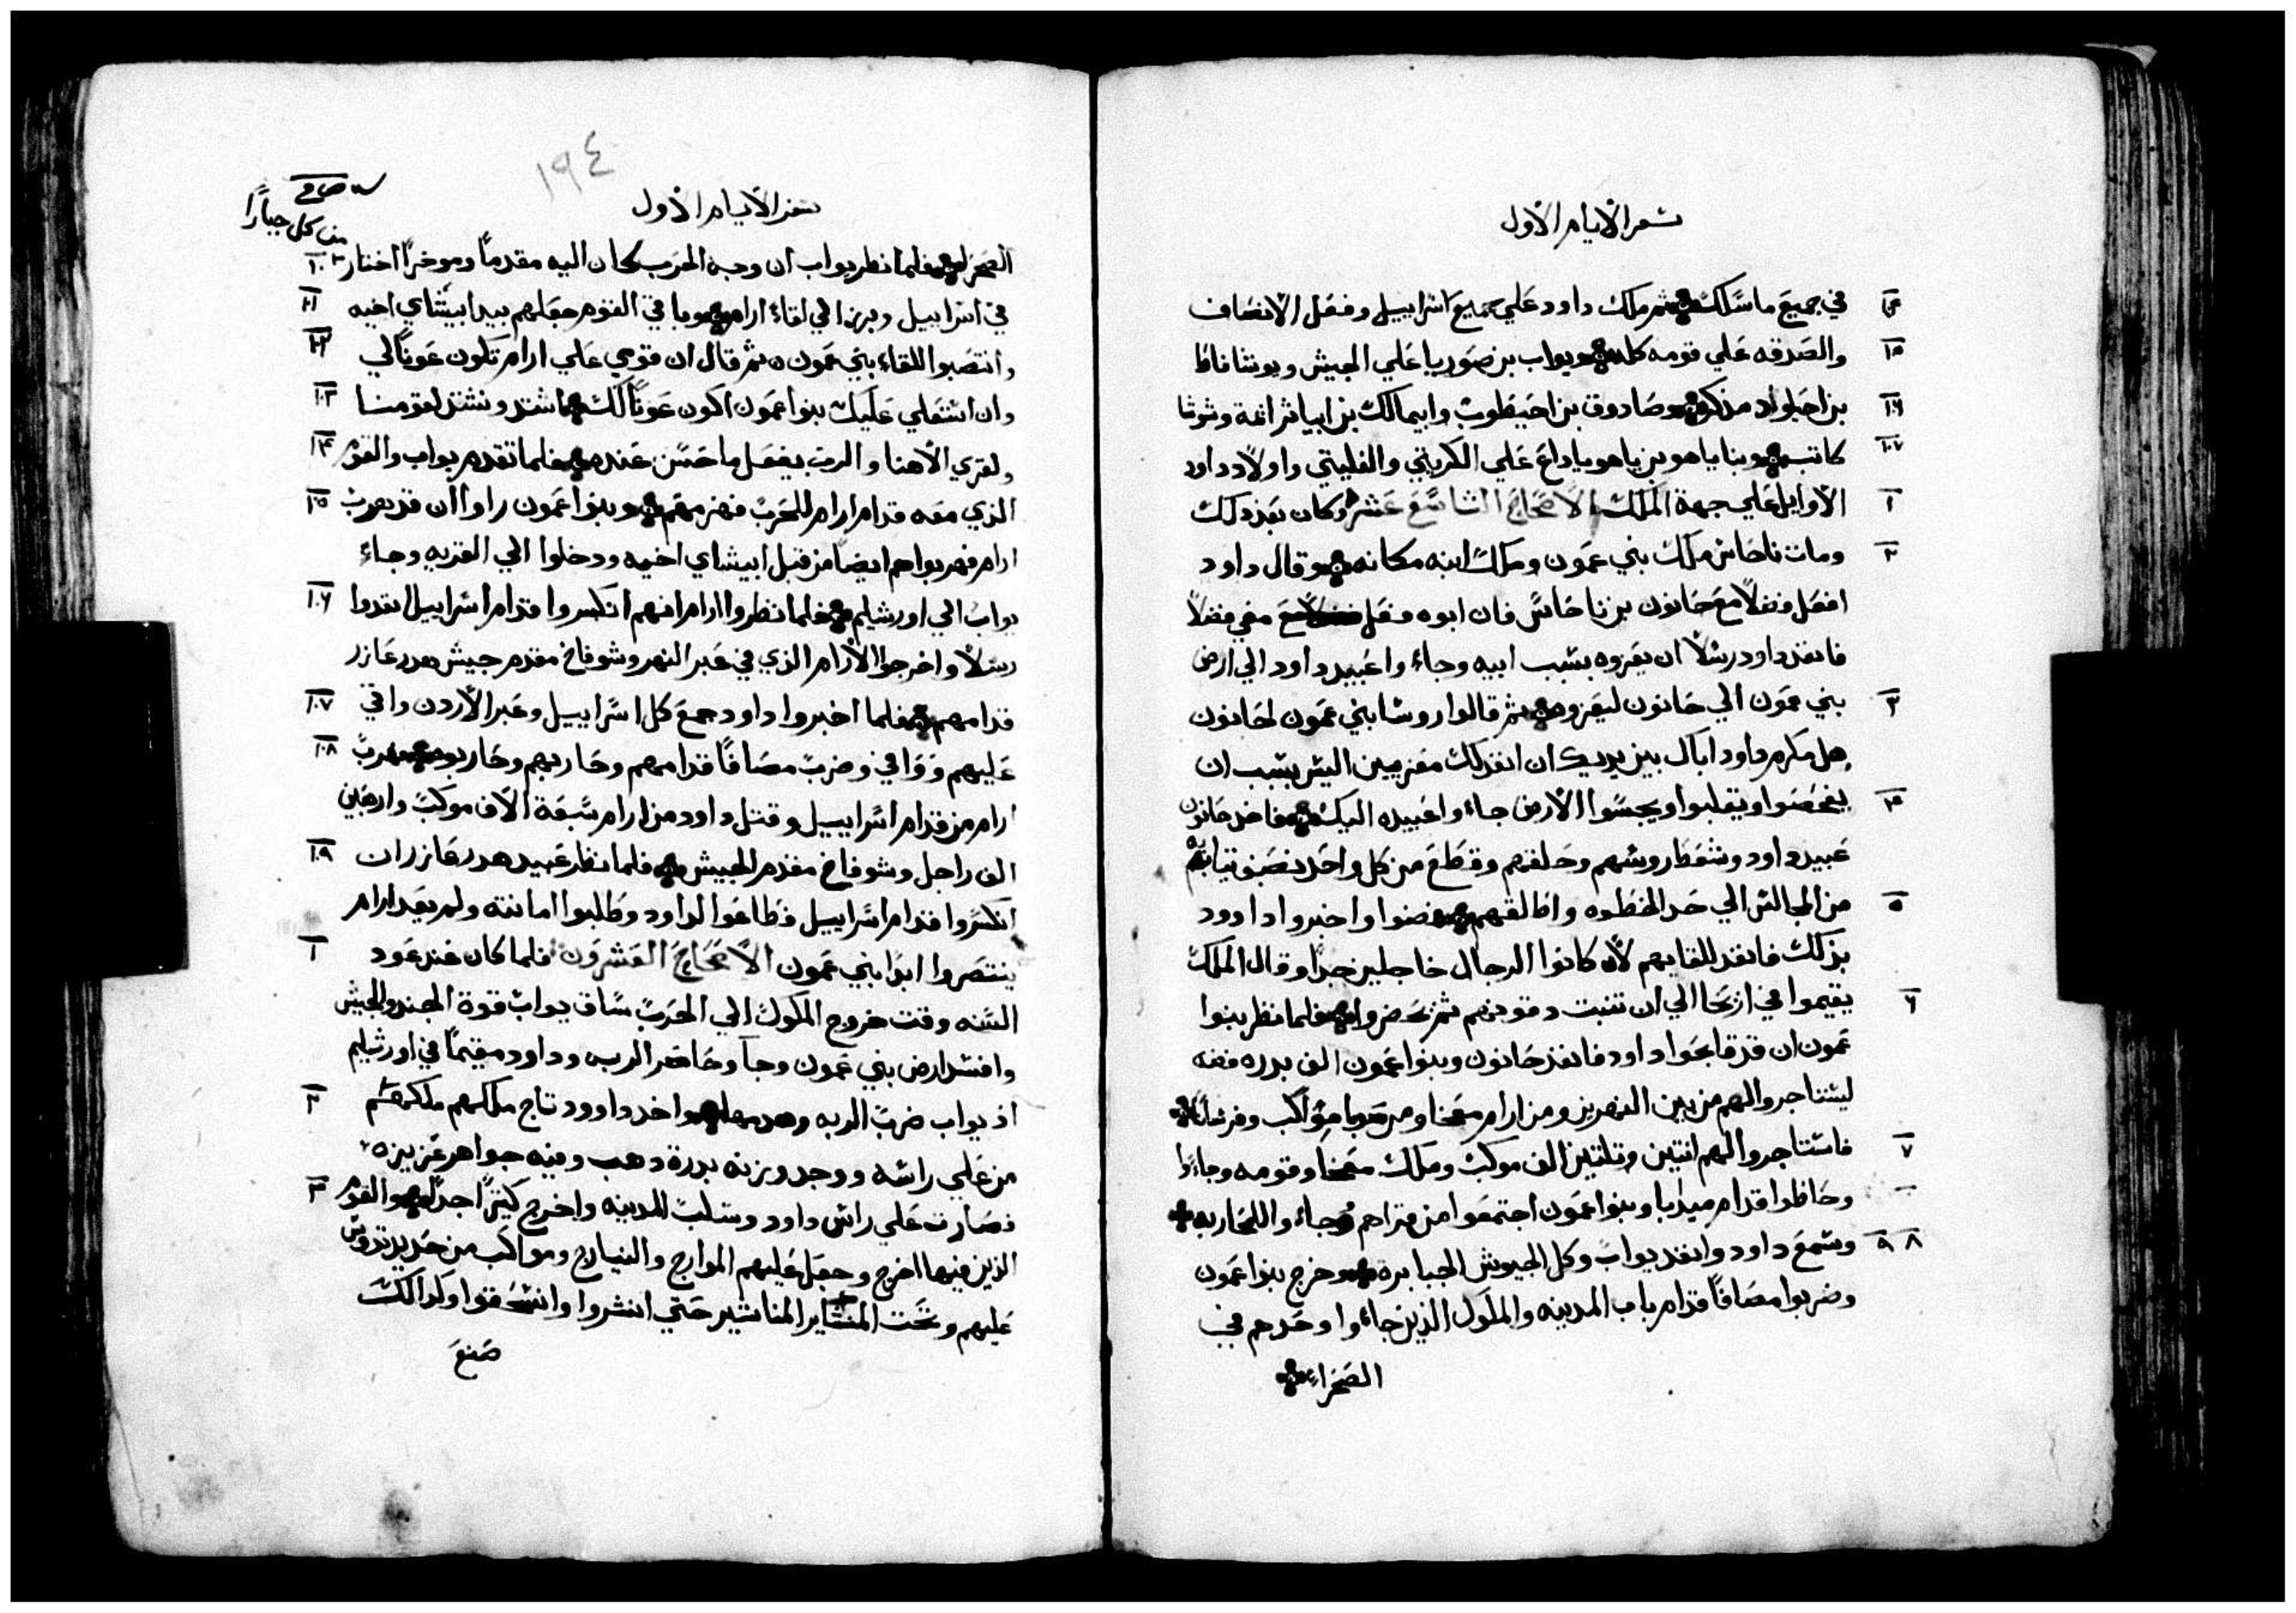 سفر الايام الاول
في جميع ما سلك ثم ملك داود علي جميع اسراييل وفعل الانصاف
والصدقه علي قومه كله ويواب بن صوريا علي الجيش ويوشافاط
بن احيلواد مذكر وصادوق بن احيطوب وابيمالك بن ابياثر ائمة وشوشا
كاتب وبناياهو بن ياهوياداع علي الكريتي والفليتي واولاد داود
الاوايل علي جهة الملك الاصحاح التاسع عشر وكان بعد ذلك
ومات ناحاش ملك بني عمون وملك ابنه مكانه وقال داود
افعل فضلاً مع حانون بن ناحاش فان ابوه فعل معي فضلاً
فانفذ داود رسلاً ان يعزوه بسبب ابيه وجاءوا عبيد داود الي ارض
بني عمون الي حانون ليعزوه ثم قالوا روسا بني عمون لحانون
هل مكرم داود اباك بين يديك ان انفذ لك معزيين اليس بسبب ان
يفحصوا ويقلبوا ويجسوا الارض جاءوا عبيده اليك فاخذ حانون
عبيد داود وشمط روسهم وحلقهم وقطع من كل واحد نصف ثيابهم
من المجالس الي حد الخطوه واطالقهم فمضوا واخبروا داوود
بذلك فانفذ للقايهم لان كانوا الرجال خاجلين جداً وقال الملك
يقيموا في اريحا الي ان تنبت دقونهم ثم تحضروا فلما نظر بنوا
عمون ان قد قابحوا داود فانفذ حانون وبنوا عمون الف بدره فضه
ليستاجروا لهم من بين النهرين ومن ارام معخا ومن صوبا مواكب وفرسانا
فاستاجروا لهم اتنين وتلتين الف موكب وملك معخا وقومه وجاءوا
وحاطوا قدام ميدبا وبنوا عمون اجتمعوا من قراهم وجاءوا للمحاربه
وسمع داود وانفذ يواب وكل الجيوش الجبابره وخرج بنوا عمون
وضربوا مصافاً قدام باب المدينه والملوك الذين جاءوا وحدهم في
الصحراء
١٩٤
سفر الايام الاول
من كل جباراً
الصحرا فلما نظر يواب ان وجه الحرب كان اليه مقدماً وموخراً اختار
في اسراييل وبرز الي لقاء ارام وما في القوم جعلهم بيد ابيشاي اخيه
وانتصبوا للقاء بني عمون ثم قال ان قوي علي ارام تكون عوناً لي
وان استعلي عليك بنوا عمون اكون عوناً لك اشتد ونشتد لقومنا
ولقري الاهنا والرب يفعل ما حسن عنده فلما تقدم يواب والقوم
الذي معه قدام ارام للحرب فهزمهم وبنوا عمون راوا ان قد هرب
ارام فهربوا هم ايضاً من قبل ابيشاي اخيه ودخلوا الي القريه وجاء
يواب الي اورشليم فلما نظروا ارام انهم انكسروا قدام اسراييل انفدوا
رسلاً واخرجوا الارام الذي في عبر النهر وشوفاخ مقدم جيش هدرعازر
قدامهم فلما اخبروا داود جمع كل اسراييل وعبر الاردن واتي
عليهم ووافي وضرب مصافاً قدامهم وحاربهم وحاربوه وهرب
ارام من قدام اسراييل وقتل داود من ارام سبعة الاف موكب واربعين
الف راجل وشوفاخ مقدم الجيش فلما نظر عبيد هدرعازر ان
انكسروا قدام اسراييل فطاعوا لداود وطلبوا امانته ولم يعد ارام
ينتصروا ابداً بني عمون الاصحاح العشرون فلما كان عند عود
السنه وقت خروج الملوك الي الحرب ساق يواب قوة الجند والجيش
وافسد ارض بني عمون وجا وحاصر الرب وداود مقيماً في اورشليم
اذ يواب ضرب الربه وهدمها واخد داوود تاج ملكهم ملكهم
من علي راسه ووجد وزنه بدرة دهب وفيه جواهر عزيزه
فصارت علي راس داود وسلب المدينه واخرج كثيراً جداً والقوم
الذين فيها اخرج وجعل عليهم الموارج والنيارج ومواكب من حديد تدوس
عليهم وتحت المنشاير المناشير حتي انشروا وانسحقوا وكذالك
صنع